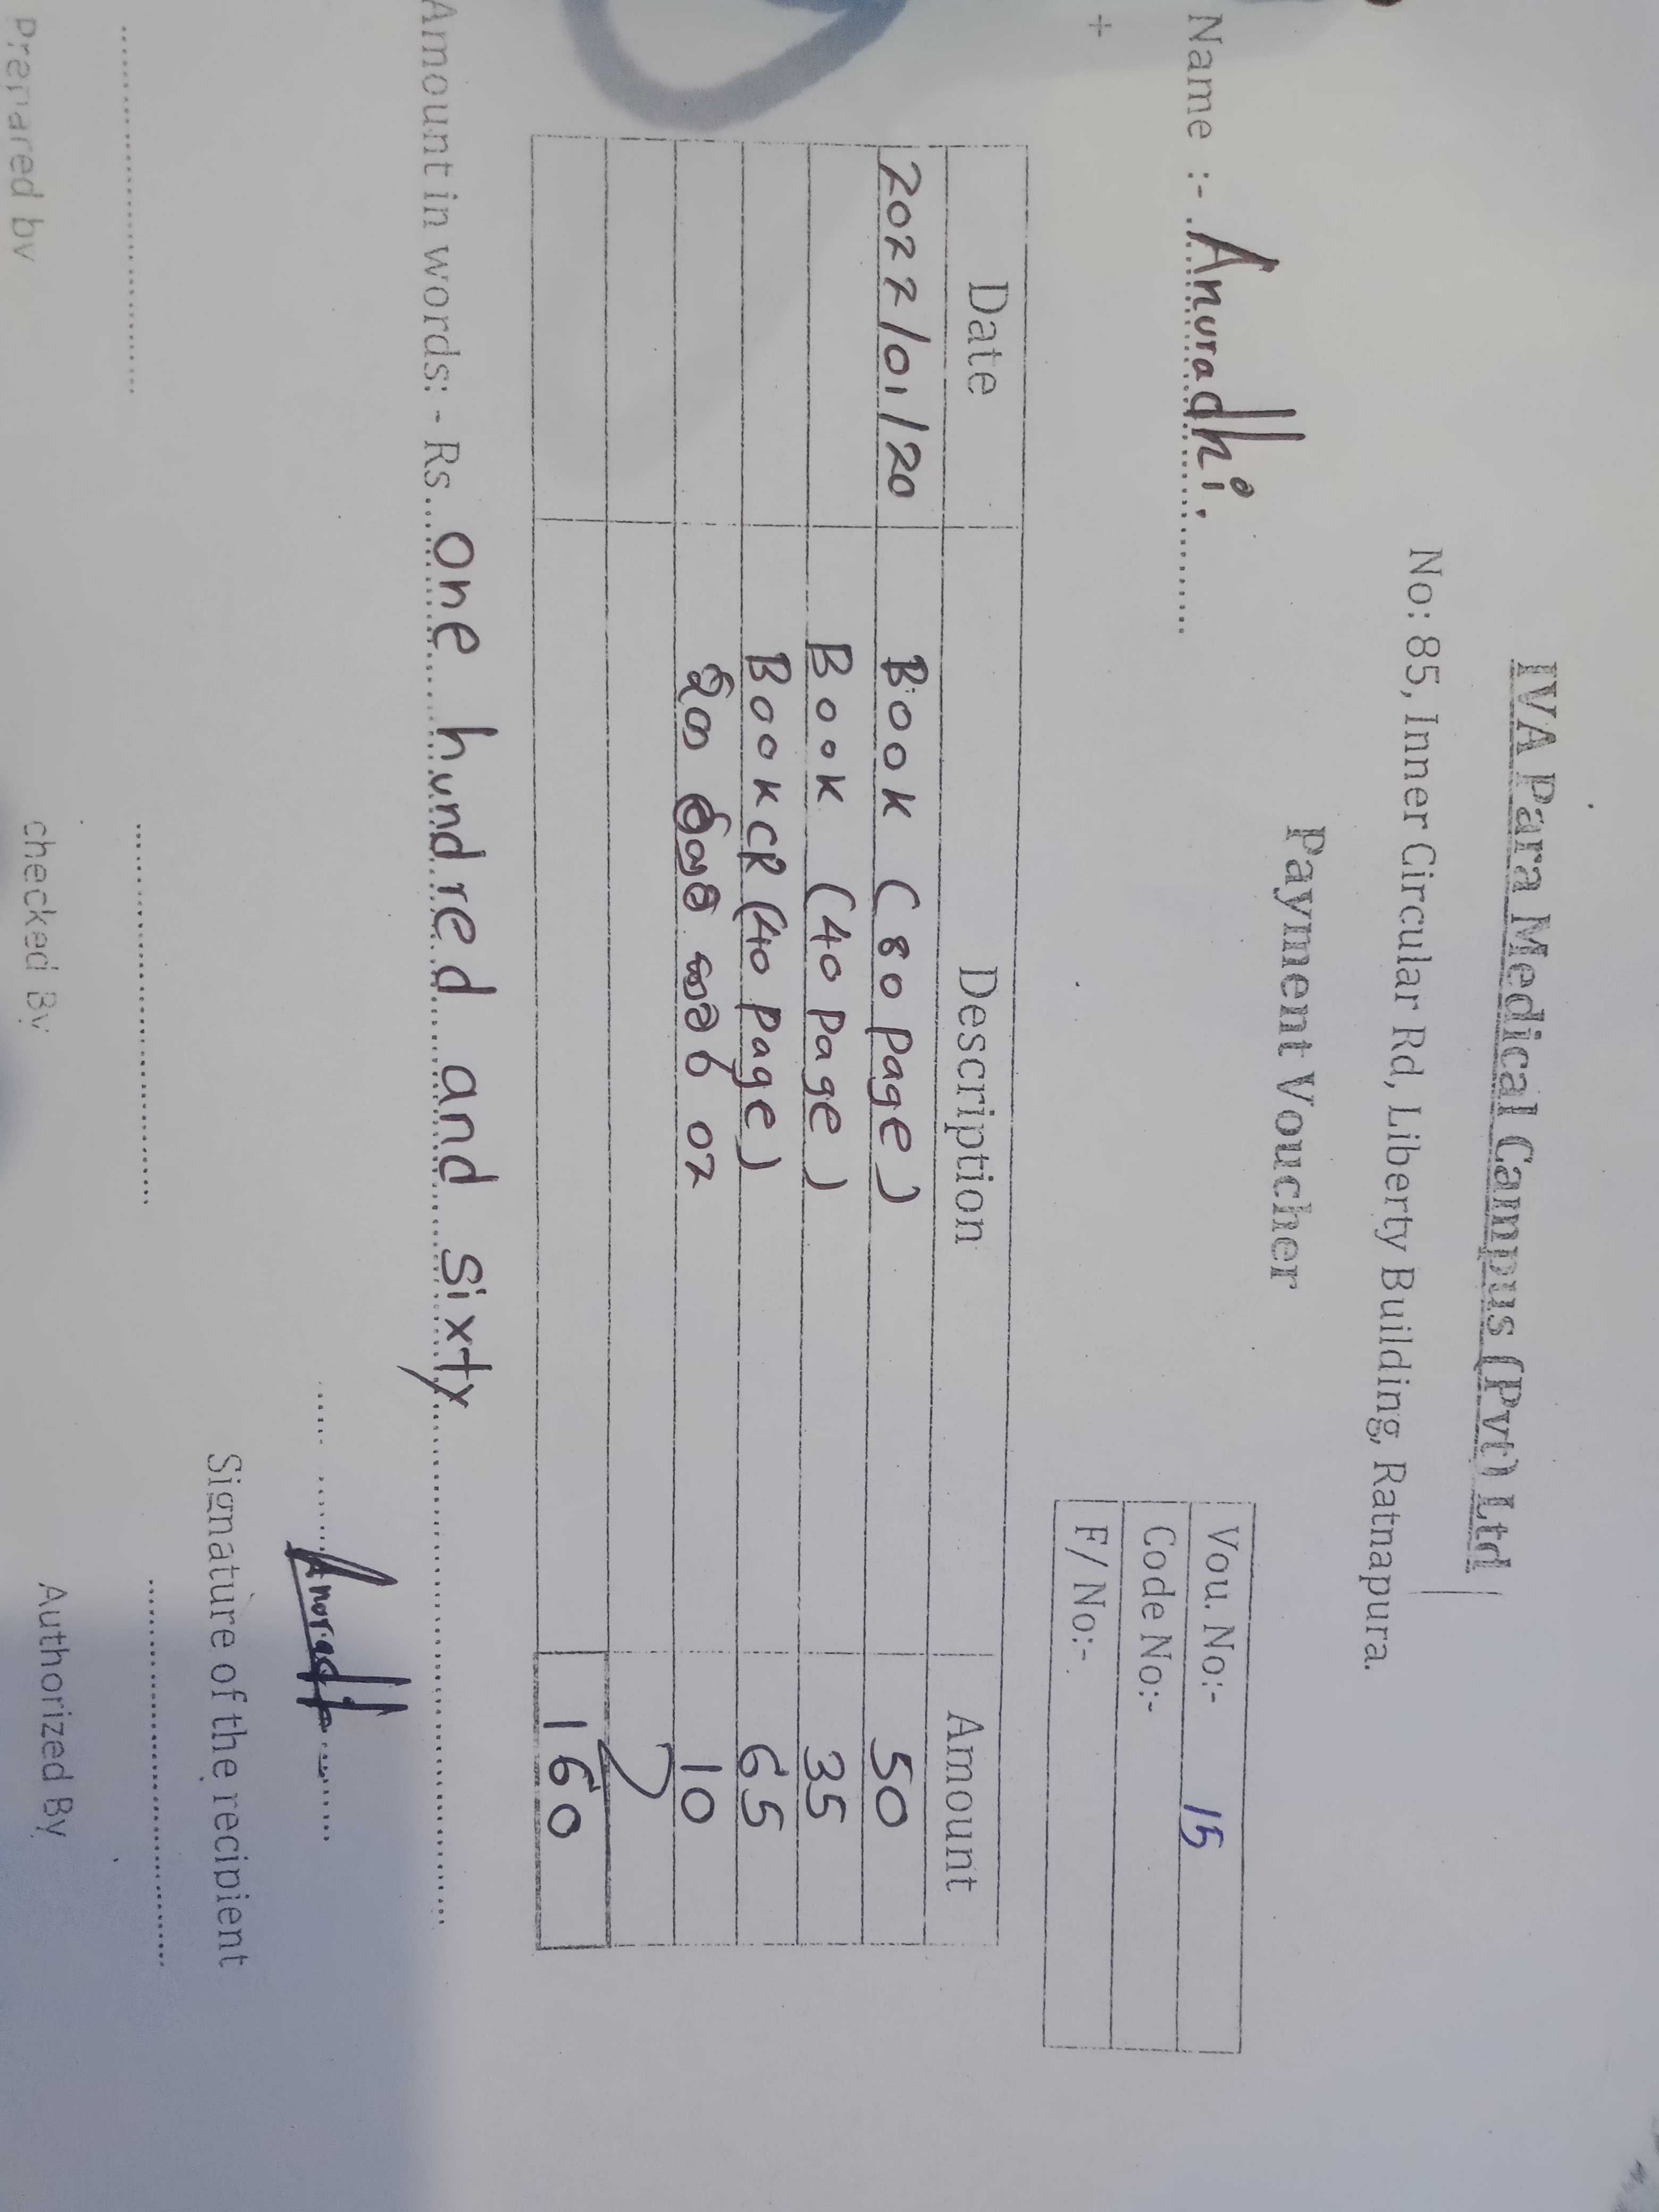 IVA Para Medical Campus (Pvt) Ltd
No: 85, Inner Circular Rd, Liberty Building, Ratnapura.
Payment Voucher
Vou. No:- 15
Code No:-
F/ No:-
Name :- Anuradhi.
+
Date Description Amount
2022/01/20 Book (80 page) 50
Book (40 page) 35
Book CR (40 page) 65
02 10
160
Amount in words: - Rs. One hundred and sixty
Anuradhi
Signature of the recipient
Prepared by checked By Authorized By